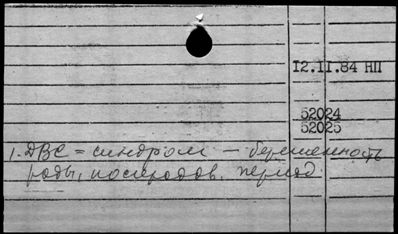 12.11.84 НП
52024
52025
1. ДВС = синдром — беременность
роды, послеродов. период.